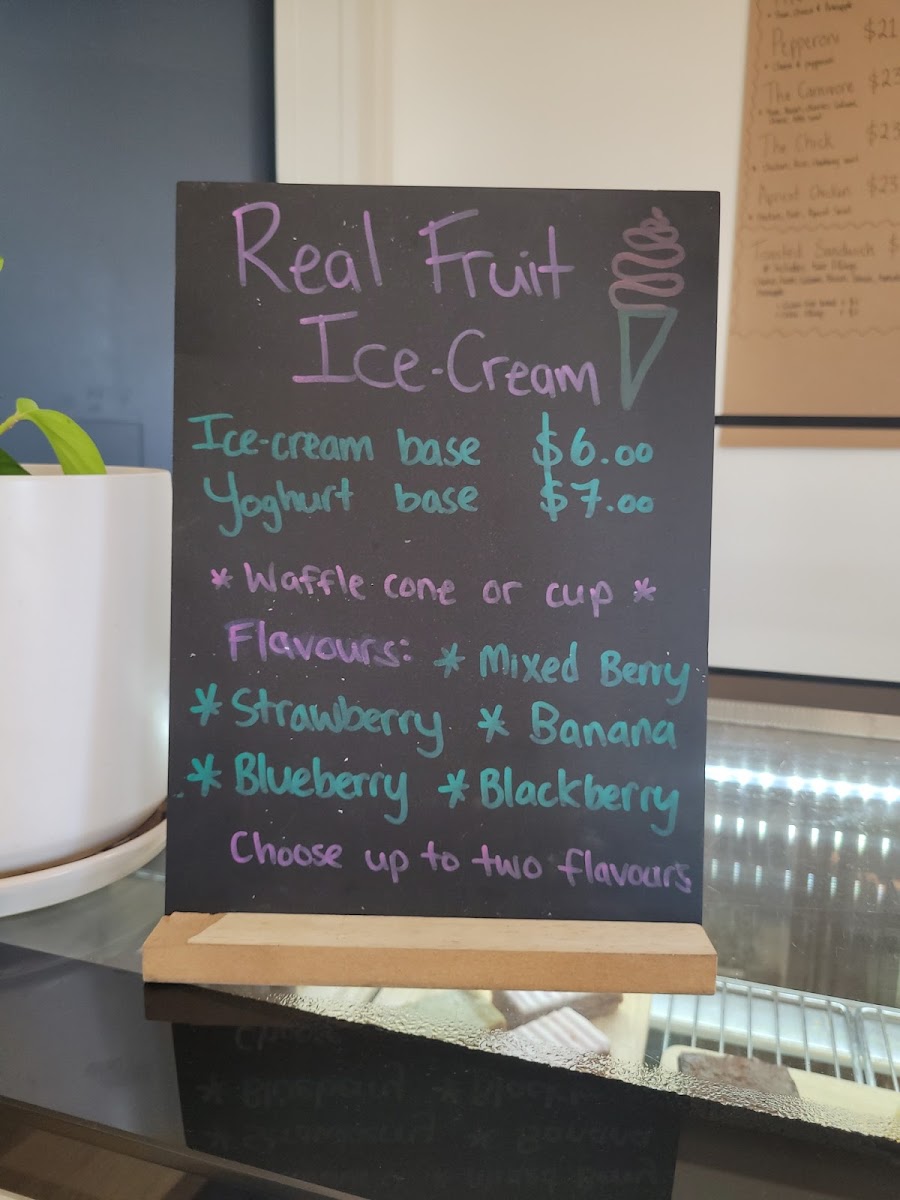 Real Fruit
Ice-Cream
Ice-cream base $6.00
Yoghurt base $7.00
* Waffle cone or cup *
Flavours: * Mixed Berry
* Strawberry * Banana
* Blueberry * Blackberry
Choose up to two flavours
Pepperoni $21
The Carnivore $23
The Chick $23
Apricot Chicken $23
Toasted Sandwich $